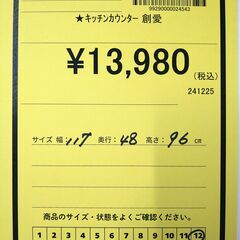 99290000024543
★キッチンカウンター 創愛
¥13,980
(税込)
241225
サイズ 幅: 117 奥行: 48 高さ: 96 cm
商品のサイズ・状態をよくご確認
1 2 3 4 5 6 7 8 9 10 11 12